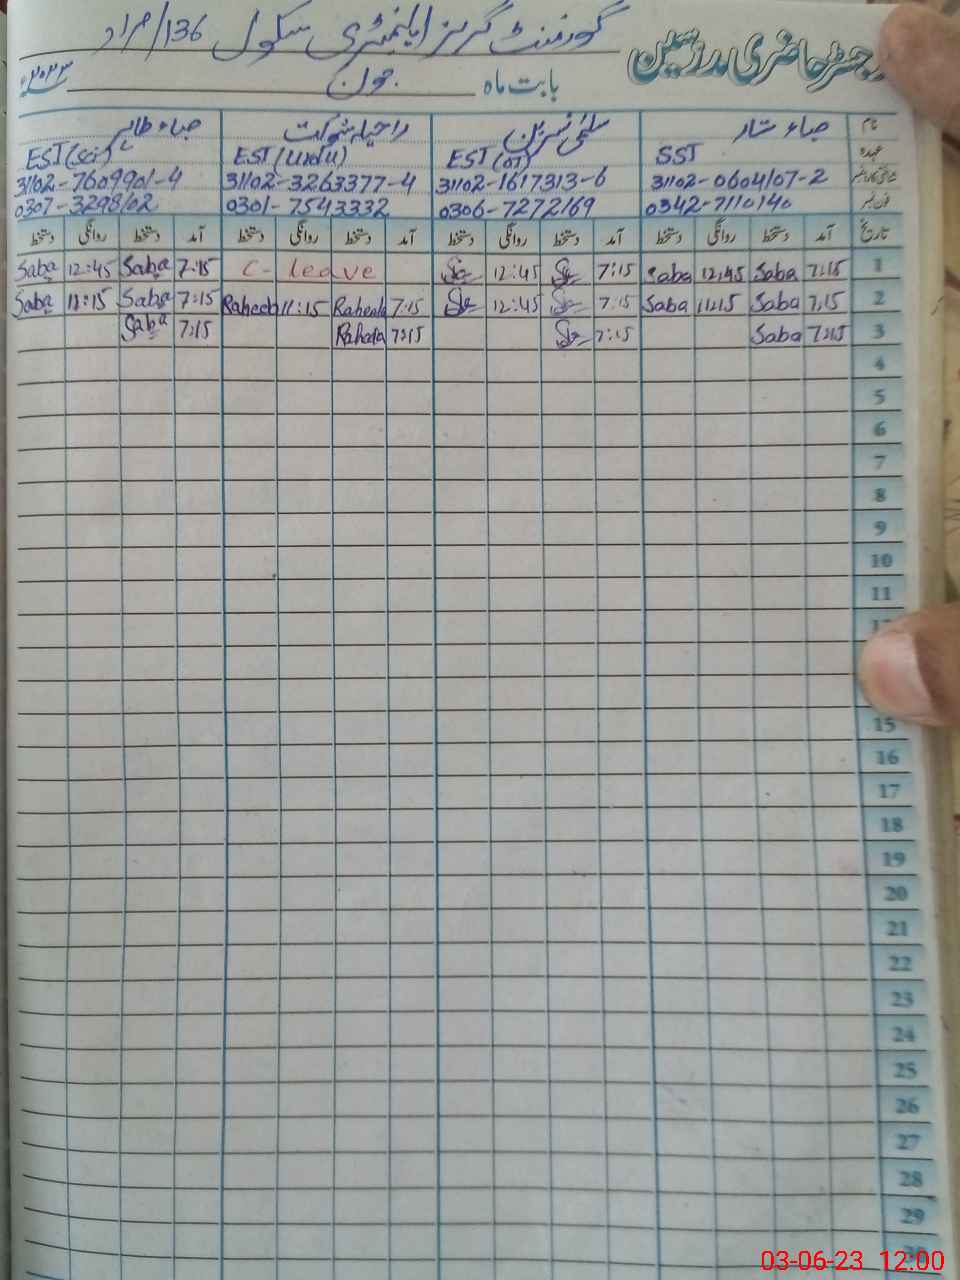 رجسٹر حاضری مدرسین گورنمنٹ گرلز ایلیمنٹری سکول 136/مراد
بابت ماہ جون ۲۰۲۳ء
نام صباء ستار سلمیٰ نسرین راحیلہ شوکت صباء طالب
عہدہ SST EST (OT) EST (Urdu) EST (Sci)
شناختی کارڈ نمبر 31102-0604107-2 31102-1617313-6 31102-3263377-4 31102-7609901-4
فون نمبر 0342-7110140 0306-7272169 0301-7543332 0307-3298102
تاریخ آمد دستخط روانگی دستخط آمد دستخط روانگی دستخط آمد دستخط روانگی دستخط آمد دستخط روانگی دستخط
1 7:15 Saba 12:45 Saba 7:15 12:45 C- leave 7:15 Saba 12:45 Saba
2 7:15 Saba 11:15 Saba 7:15 12:45 7:15 Raheela 11:15 Raheela 7:15 Saba 11:15 Saba
3 7:15 Saba 7:15 7:15 Raheela 7:15 Saba
4
5
6
7
8
9
10
11
12
15
16
17
18
19
20
21
22
23
24
25
26
27
28
29
30
03-06-23 12:00